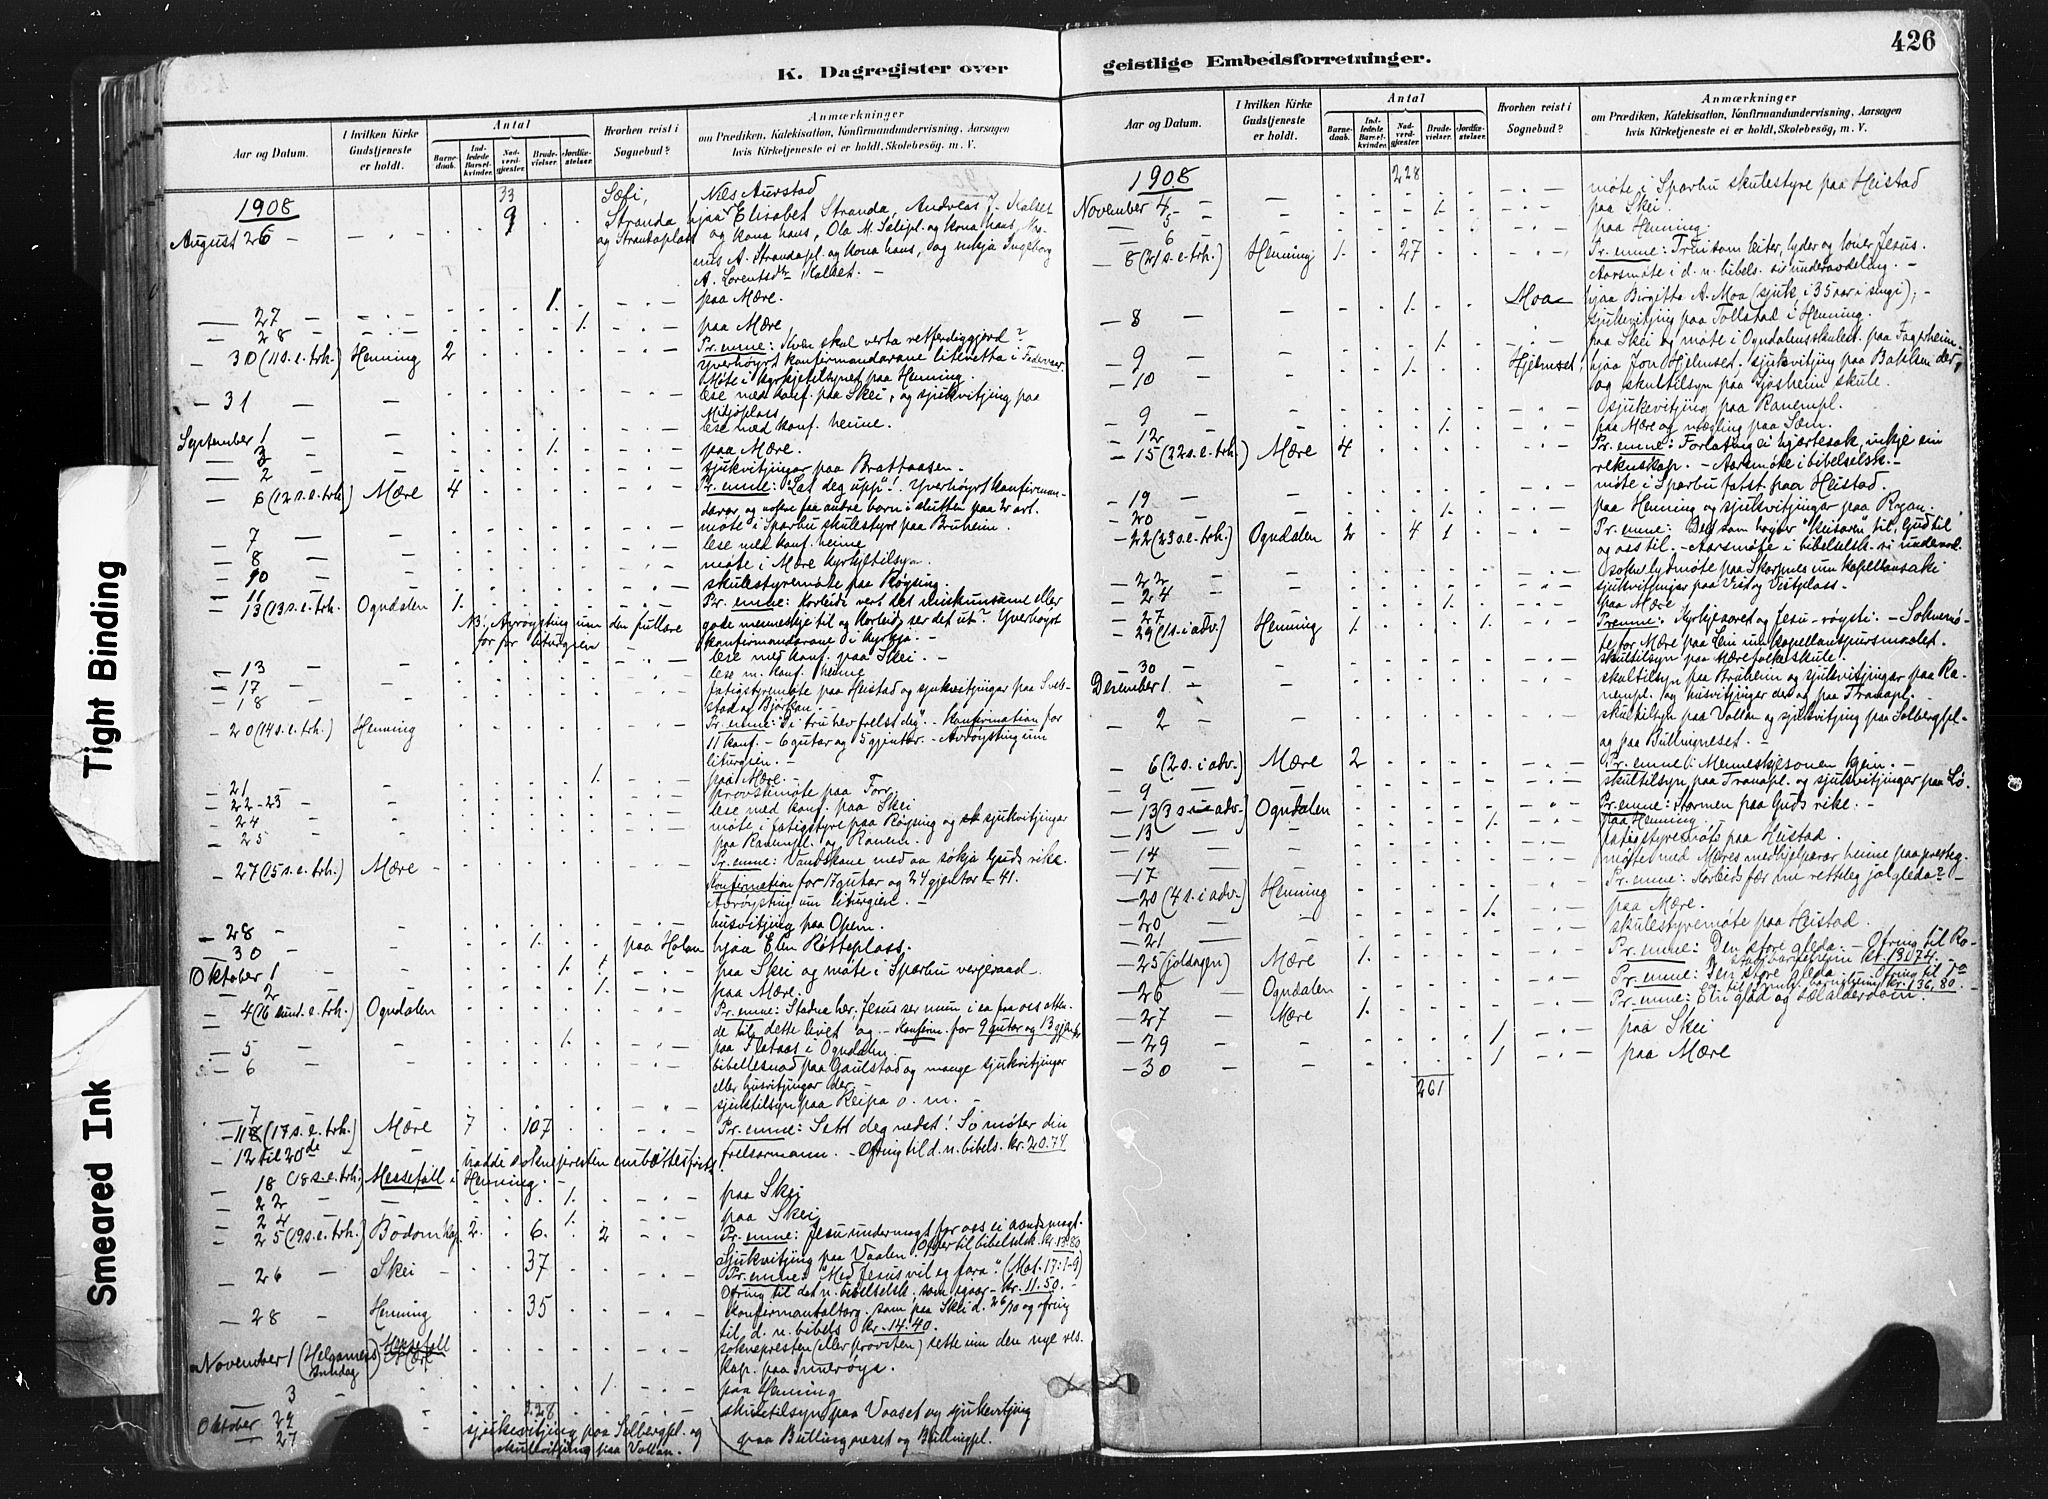 426
K. Dagregister over
geistlige Embedsforretninger.
Aar og Datum.
I hvilken Kirke Gudstjeneste er holdt.
Antal
Barnedaab.
Indledede Barselkvinder.
Nadverdgjæster.
Brudevielser.
Jordfæstelser.
Hvorhen reist i Sognebud?
Anmærkninger
om Prædiken, Katekisation, Konfirmandundervisning, Aarsagen
hvis Kirketjeneste ei er holdt. Skolebesøg. m. V.
1908
33 Sæfi, Nils Aurstad
August 26 9 Stranda hjaa Elisabet Stranda, Andreas J. Kalset
og Strandaplass og kona hans, Ola M. Selipl. og kona hans,
A. Strandapl. og kona hans, og enkja Ingeborg
A. Lorentsdtr Kalset. -
27 1. paa Mære.
28 1. paa Mære
30 (11 s. e. trh.) Henning 2 Pr. emne: Kven skal verta retferdiggjord?
Yverhøyrt konfirmandarane
Møte i kyrkjetilsynet paa Henning.
31 lese med konf. paa Skei, og sjukvitjing paa
September 1 lese med konf. heime.
3 1. paa Mære.
2 sjukvitjingar paa Brattaasen.
6 (12 s. e. trh.) Mære 4 Pr. emne: "Lat deg upp"! Yverhøyrt konfirman-
darar og nokre faa andre born i slutten paa 2 art.
7 møte i Sparbu skulestyre paa Bruheim.
8 lese med konf. heime
10 møte i Mære kyrkjetilsyn.
11 skulestyremøte paa Røysing.
13 (13 s. e. trh. Ogndalen 1. Pr. emne: Korleids vert det miskunsame eller
NB. Avrøysting um den fullare gode menneskje til og korleids ser det ut? Yverhøyrt
for før liturgien konfirmandarane i kyrkja.
13 lese med konf. paa Skei. -
17 lese m. konf. heime
18 fatigstyremøte paa Heistad og sjukvitjingar paa
stad og Bjørkan.
20 (14 s. e. trh.) Henning Pr. emne: "Di tru hev frelst deg". - Konfirmation for
11 konf. - 6 gutar og 5 gjentar. - Avrøysting um
liturgien. -
21 1. paa Mære.
22-23 provstimøte paa Forr
24 lese med konf. paa Skei
25 møte i fatigstyre paa Røysing og sjukvitjingar
paa Ranempl. og Ranem.
27 (15 s. e. trh.) Mære Pr. emne: Vandskane med aa søkja Guds rike.
Konfirmation for 17 gutar og 24 gjentar = 41.
Avrøysting um liturgien. -
28 husvitjing paa Opem.
30 1. paa Holan hjaa Elen Røtteplass.
Oktober 1 1. 1. paa Skei og møte i Sparbu verjeraad.
2 1. paa Mære.
4 (16 sund. e. trh.) Ogndalen Pr. emne: Stadna her, Jesus ser mun i ea fraa oss
de til dette livet og - Konfirm. for 9 gutar og 13 gjentar
5 1. paa Flataas i Ogndalen
6 bibellesnad paa Gaulstad og mange sjukvitjingar
eller husvitjingar der. -
7 skuletilsyn paa Reipa o. m. -
11 (17 s. e. trh.) Mære 7 107 Pr. emne: Sett deg nedst! So møter din
12 til 20de hadde soknepresten embættesførsla frelsarmann. - Ofring til d. n. bibels. kr. 20.74
18 (18 s. e. trh.) Messefall i Henning. -
22 1. paa Skei
24 1. paa Skei
25 (19 s. e. trh.) Bødom kap. 2. 6. 2 Pr. emne: Jesu undermagt for oss ei aandsmagt.
Sjukvitjing paa Vaalen. Offer til bibelselsk. kr. 13.80
26 Skei 37 Pr. emne: "Med Jesus vil eg fara". (Mat. 17:1-9)
Ofring til det n. bibelselsk. som igaar - kr. 11.50. -
28 Henning 35 konfirmantaltarg. som paa Skei d. 26/10 og ofring
til d. n. bibels kr. 14.40.
November 1 (Helgamess sundag) Messefall Mære soknepresten (eller provsten) sette inn den nye res.
kap. paa Inderøya.
3 1. paa Henning
Oktober 29 228 skuletilsyn paa Vaaset og sjukevitjing
27 sjukevitjing paa Solbergpl. og paa Bullingneset og Bullingpl.
skulevitjing paa Vollan.
Aar og Datum.
I hvilken Kirke Gudstjeneste er holdt.
Antal
Barnedaab.
Indledede Barselkvinder.
Nadverdgjæster.
Brudevielser.
Jordfæstelser.
Hvorhen reist i Sognebud?
Anmærkninger
om Prædiken, Katekisation, Konfirmandundervisning, Aarsagen
hvis Kirketjeneste ei er holdt, Skolebesøg, m. V.
1908 228 møte i Sparbu skulestyre paa Heistad
November 4 1. paa Skei.
5 paa Henning.
6
8 (21 s. e. trh.) Henning 1. 27 Pr. emne: Trui som leiter, lyder og løner Jesus.
Aarsmøte i d. n. bibels. si underavdeling. -
8 1. Moa hjaa Birgitta A. Moa (sjuk i 35 aar i sengi); -
sjukvitjing paa Tollstad i Henning.
9 1. paa Skei og møte i Ogndalens skulest. paa Fagerheim.
10 1. Hjelmset hjaa Jon Hjelmset. sjukvitjing paa Baklem der,
og skultilsyn paa Sjøsheim skule.
9 sjukevitjing paa Ranempl.
12 1. paa Mære og mæsling paa Sæm.
15 (22 s. e. trh.) Mære 4 Pr. emne: Forlating ei hjartesak, inkje ein
rekneskap. - Aarsmøte i bibelselsk. -
19 møte i Sparbu fatst. paa Heistad.
20 1. paa Henning og sjukvitjingar paa Ryan.
22 (23 s. e. trh.) Ogndalen 2 4 1 Pr. emne: Bed som høyer "Keisaren" til, Gud til
og oss til. - Aarsmøte i bibelselsk. si underavd.
22 soknelydmøte paa Skarpnes um kapellansaki
24 sjukvitjingar paa Vist og Vistplass.
27 1. paa Mære
29 (1 s. i adv.) Henning 1. 1. Pr. emne: Kyrkjeaaret og Jesu-røysti. - Soknemø-
te for Mære paa Lein um kapellanspursmaalet.
30 skultilsyn paa Mære folkeskule.
Desember 1 skultilsyn paa Bruheim og sjukvitjingar paa Ra-
nempl. og husvitjingar der og paa Tranapl.
2 skultilsyn paa Vollan og sjukvitjing paa Solbergpl.
og paa Bullingneset. -
6 (2 s. i adv.) Mære 2 Pr. emne: Menneskjesonen kjem. -
9 skultilsyn paa Tranapl. og sjukvitjingar paa Lø.
13 (3 s. i adv.) Ogndalen Pr. emne: Stormen paa Guds rike. -
13 1. paa Henning
14 fatigstyremøte paa Heistad.
17 møte med Mæres medhjelparar heime paa presteg.
20 (4 s. i adv.) Henning Pr. emne: Korleids fær me rettleg jolgleda? -
20 1. paa Mære.
21 skulestyremøte paa Heistad.
25 (joldagen) Mære 1. Pr. emne: Den store gleda. - Ofring til
barneheim kr. 130,74. -
26 Ogndalen Pr. emne: Den store gleda - Ofring til
kr. 136,80. -
27 Mære 1. Pr. emne: Ein glad og sæl alderdom.
29 1 paa Skei
30 1 paa Mære
261
Tight Binding
Smeared Ink